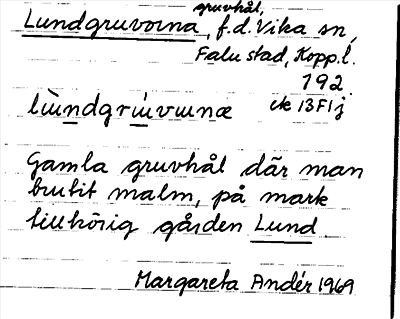 Lundgruvorna, gruvhål, f.d. Vika sn,
Falu stad, Kopp.l.
192.
lùndgrúvuṇæ ek 13F1j
Gamla gruvhål där man
brutit malm, på mark
tillhörig gården Lund
Margareta Andér 1969